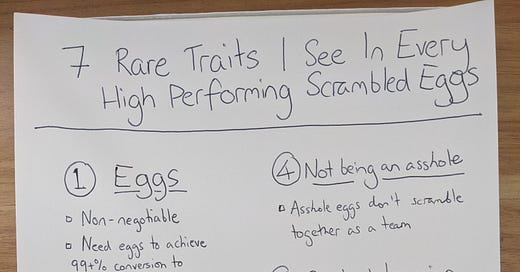 7 Rare Traits I See In Every
High Performing Scrambled Eggs
① Eggs
▫ Non-negotiable
▫ Need eggs to achieve
99+% conversion to
④ Not being an asshole
▫ Asshole eggs don't scramble
together as a team